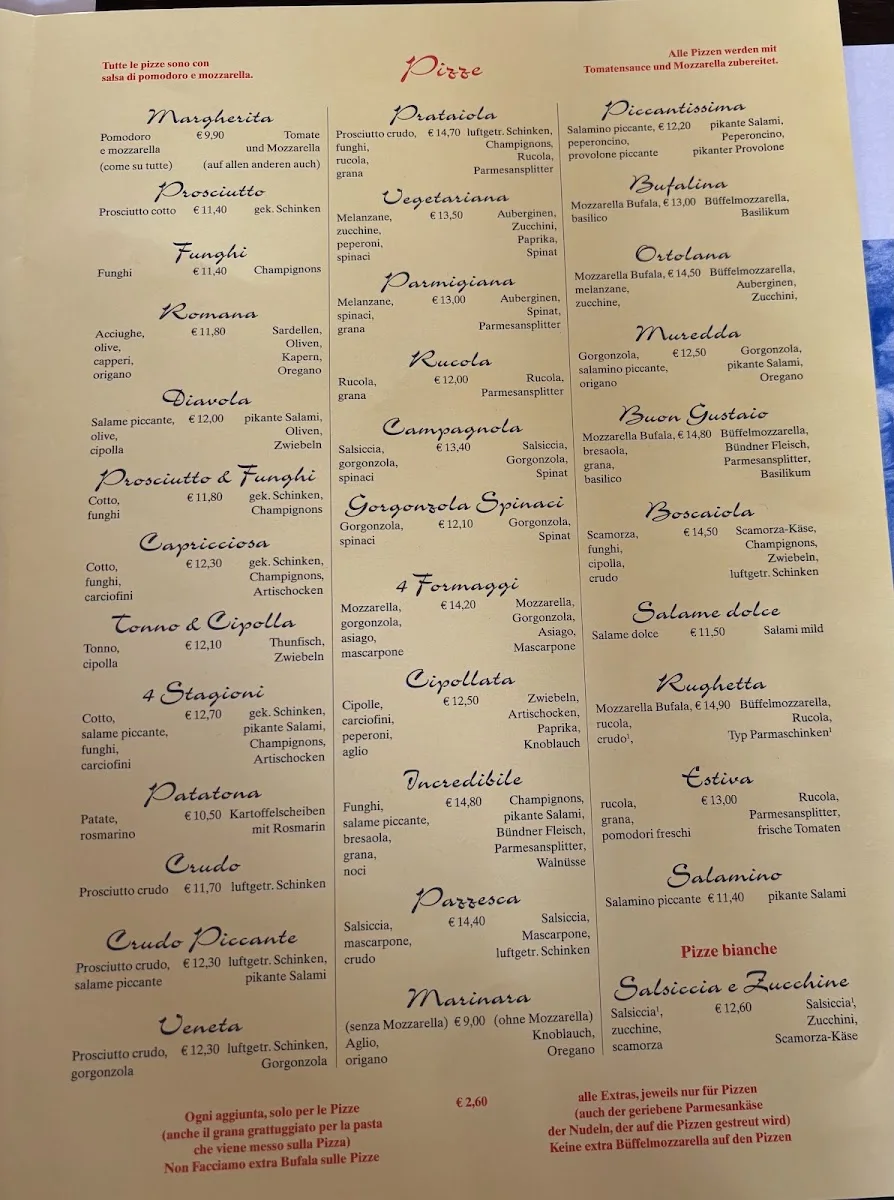 Tutte le pizze sono con
salsa di pomodoro e mozzarella.
Pizze
Alle Pizzen werden mit
Tomatensauce und Mozzarella zubereitet.
Margherita
Pomodoro € 9,90 Tomate
e mozzarella und Mozzarella
(come su tutte) (auf allen anderen auch)
Prosciutto
Prosciutto cotto € 11,40 gek. Schinken
Funghi
Funghi € 11,40 Champignons
Romana
Acciughe, € 11,80 Sardellen,
olive, Oliven,
capperi, Kapern,
origano Oregano
Diavola
Salame piccante, € 12,00 pikante Salami,
olive, Oliven,
cipolla Zwiebeln
Prosciutto & Funghi
Cotto, € 11,80 gek. Schinken,
funghi Champignons
Capricciosa
Cotto, € 12,30 gek. Schinken,
funghi, Champignons,
carciofini Artischocken
Tonno & Cipolla
Tonno, € 12,10 Thunfisch,
cipolla Zwiebeln
4 Stagioni
Cotto, € 12,70 gek. Schinken,
salame piccante, pikante Salami,
funghi, Champignons,
carciofini Artischocken
Patatona
Patate, € 10,50 Kartoffelscheiben
rosmarino mit Rosmarin
Crudo
Prosciutto crudo € 11,70 luftgetr. Schinken
Crudo Piccante
Prosciutto crudo, € 12,30 luftgetr. Schinken,
salame piccante pikante Salami
Veneta
Prosciutto crudo, € 12,30 luftgetr. Schinken,
gorgonzola Gorgonzola
Prataiola
Prosciutto crudo, € 14,70 luftgetr. Schinken,
funghi, Champignons,
rucola, Rucola,
grana Parmesansplitter
Vegetariana
Melanzane, € 13,50 Auberginen,
zucchine, Zucchini,
peperoni, Paprika,
spinaci Spinat
Parmigiana
Melanzane, € 13,00 Auberginen,
spinaci, Spinat,
grana Parmesansplitter
Rucola
Rucola, € 12,00 Rucola,
grana Parmesansplitter
Campagnola
Salsiccia, € 13,40 Salsiccia,
gorgonzola, Gorgonzola,
spinaci Spinat
Gorgonzola Spinaci
Gorgonzola, € 12,10 Gorgonzola,
spinaci Spinat
4 Formaggi
Mozzarella, € 14,20 Mozzarella,
gorgonzola, Gorgonzola,
asiago, Asiago,
mascarpone Mascarpone
Cipollata
Cipolle, € 12,50 Zwiebeln,
carciofini, Artischocken,
peperoni, Paprika,
aglio Knoblauch
Incredibile
Funghi, € 14,80 Champignons,
salame piccante, pikante Salami,
bresaola, Bündner Fleisch,
grana, Parmesansplitter,
noci Walnüsse
Pazzesca
Salsiccia, € 14,40 Salsiccia,
mascarpone, Mascarpone,
crudo luftgetr. Schinken
Marinara
(senza Mozzarella) € 9,00 (ohne Mozzarella)
Aglio, Knoblauch,
origano Oregano
Piccantissima
Salamino piccante, € 12,20 pikante Salami,
peperoncino, Peperoncino,
provolone piccante pikanter Provolone
Bufalina
Mozzarella Bufala, € 13,00 Büffelmozzarella,
basilico Basilikum
Ortolana
Mozzarella Bufala, € 14,50 Büffelmozzarella,
melanzane, Auberginen,
zucchine, Zucchini,
Muredda
Gorgonzola, € 12,50 Gorgonzola,
salamino piccante, pikante Salami,
origano Oregano
Buon Gustaio
Mozzarella Bufala, € 14,80 Büffelmozzarella,
bresaola, Bündner Fleisch,
grana, Parmesansplitter,
basilico Basilikum
Boscaiola
Scamorza, € 14,50 Scamorza-Käse,
funghi, Champignons,
cipolla, Zwiebeln,
crudo luftgetr. Schinken
Salame dolce
Salame dolce € 11,50 Salami mild
Rughetta
Mozzarella Bufala, € 14,90 Büffelmozzarella,
rucola, Rucola,
crudo¹, Typ Parmaschinken¹
Estiva
rucola, € 13,00 Rucola,
grana, Parmesansplitter,
pomodori freschi frische Tomaten
Salamino
Salamino piccante € 11,40 pikante Salami
Pizze bianche
Salsiccia e Zucchine
Salsiccia¹, € 12,60 Salsiccia¹,
zucchine, Zucchini,
scamorza Scamorza-Käse
Ogni aggiunta, solo per le Pizze
(anche il grana grattuggiato per la pasta
che viene messo sulla Pizza)
Non Facciamo extra Bufala sulle Pizze
€ 2,60
alle Extras, jeweils nur für Pizzen
(auch der geriebene Parmesankäse
der Nudeln, der auf die Pizzen gestreut wird)
Keine extra Büffelmozzarella auf den Pizzen